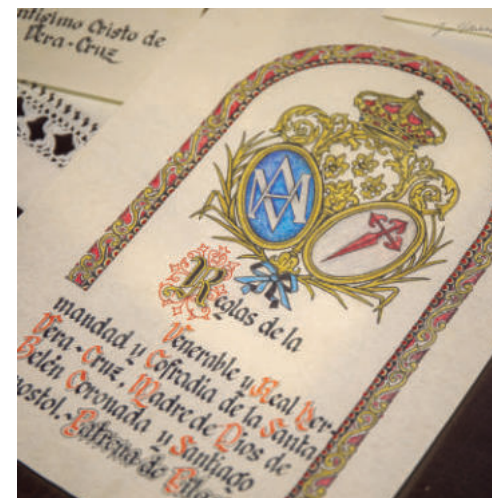 ntísimo Cristo de
Vera-Cruz
Reglas de la
Venerable y Real Her-
mandad y Cofradía de la Santa
Vera-Cruz, Madre de Dios de
Belén Coronada y Santiago
postol.